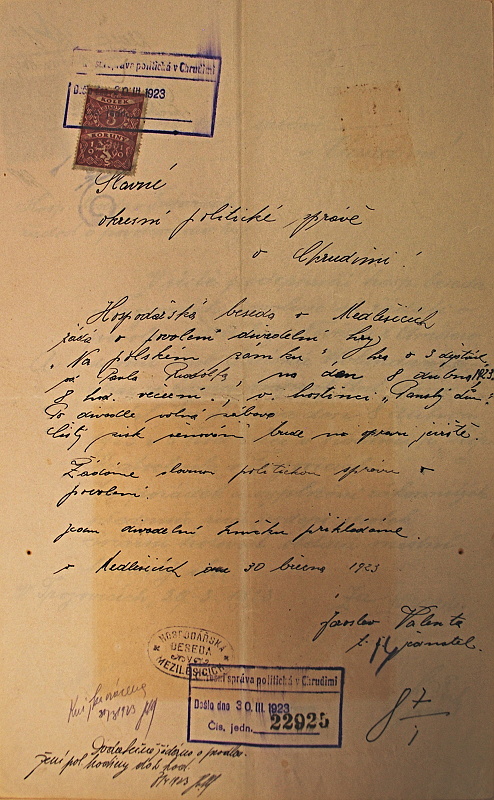 Okresní správa politická v Chrudimi
Došlo dne 30 III 1923
KOLEK
3
KORUNY
Slavné
okresní politické správě
v Chrudimi!
Hospodářská beseda v Medlešicích
žádá o povolení divadelní hry
"Na polském zámku" hra o 3 dějstvích
od Pavla Rudolfa, na den 8 dubna 1923
8 hod. večerní v hostinci "Panský dům"
Po divadle volná zábava
čistý zisk věnován bude na opravu jeviště.
Žádáme slavnou politickou správu o
povolení.
divadelní knížku přikládáme.
v Medlešicích 30 března 1923
Jaroslav Valenta
t. č. jednatel.
HOSPODÁŘSKÁ
BESEDA
V
MEZILESICÍCH
Okresní správa politická v Chrudimi
Došlo dne 30. III. 1923
Čís. jedn. 22925
30/3 1923
Dodatečně žádáno o prodlou-
žení pol. hodiny do hod.
1923